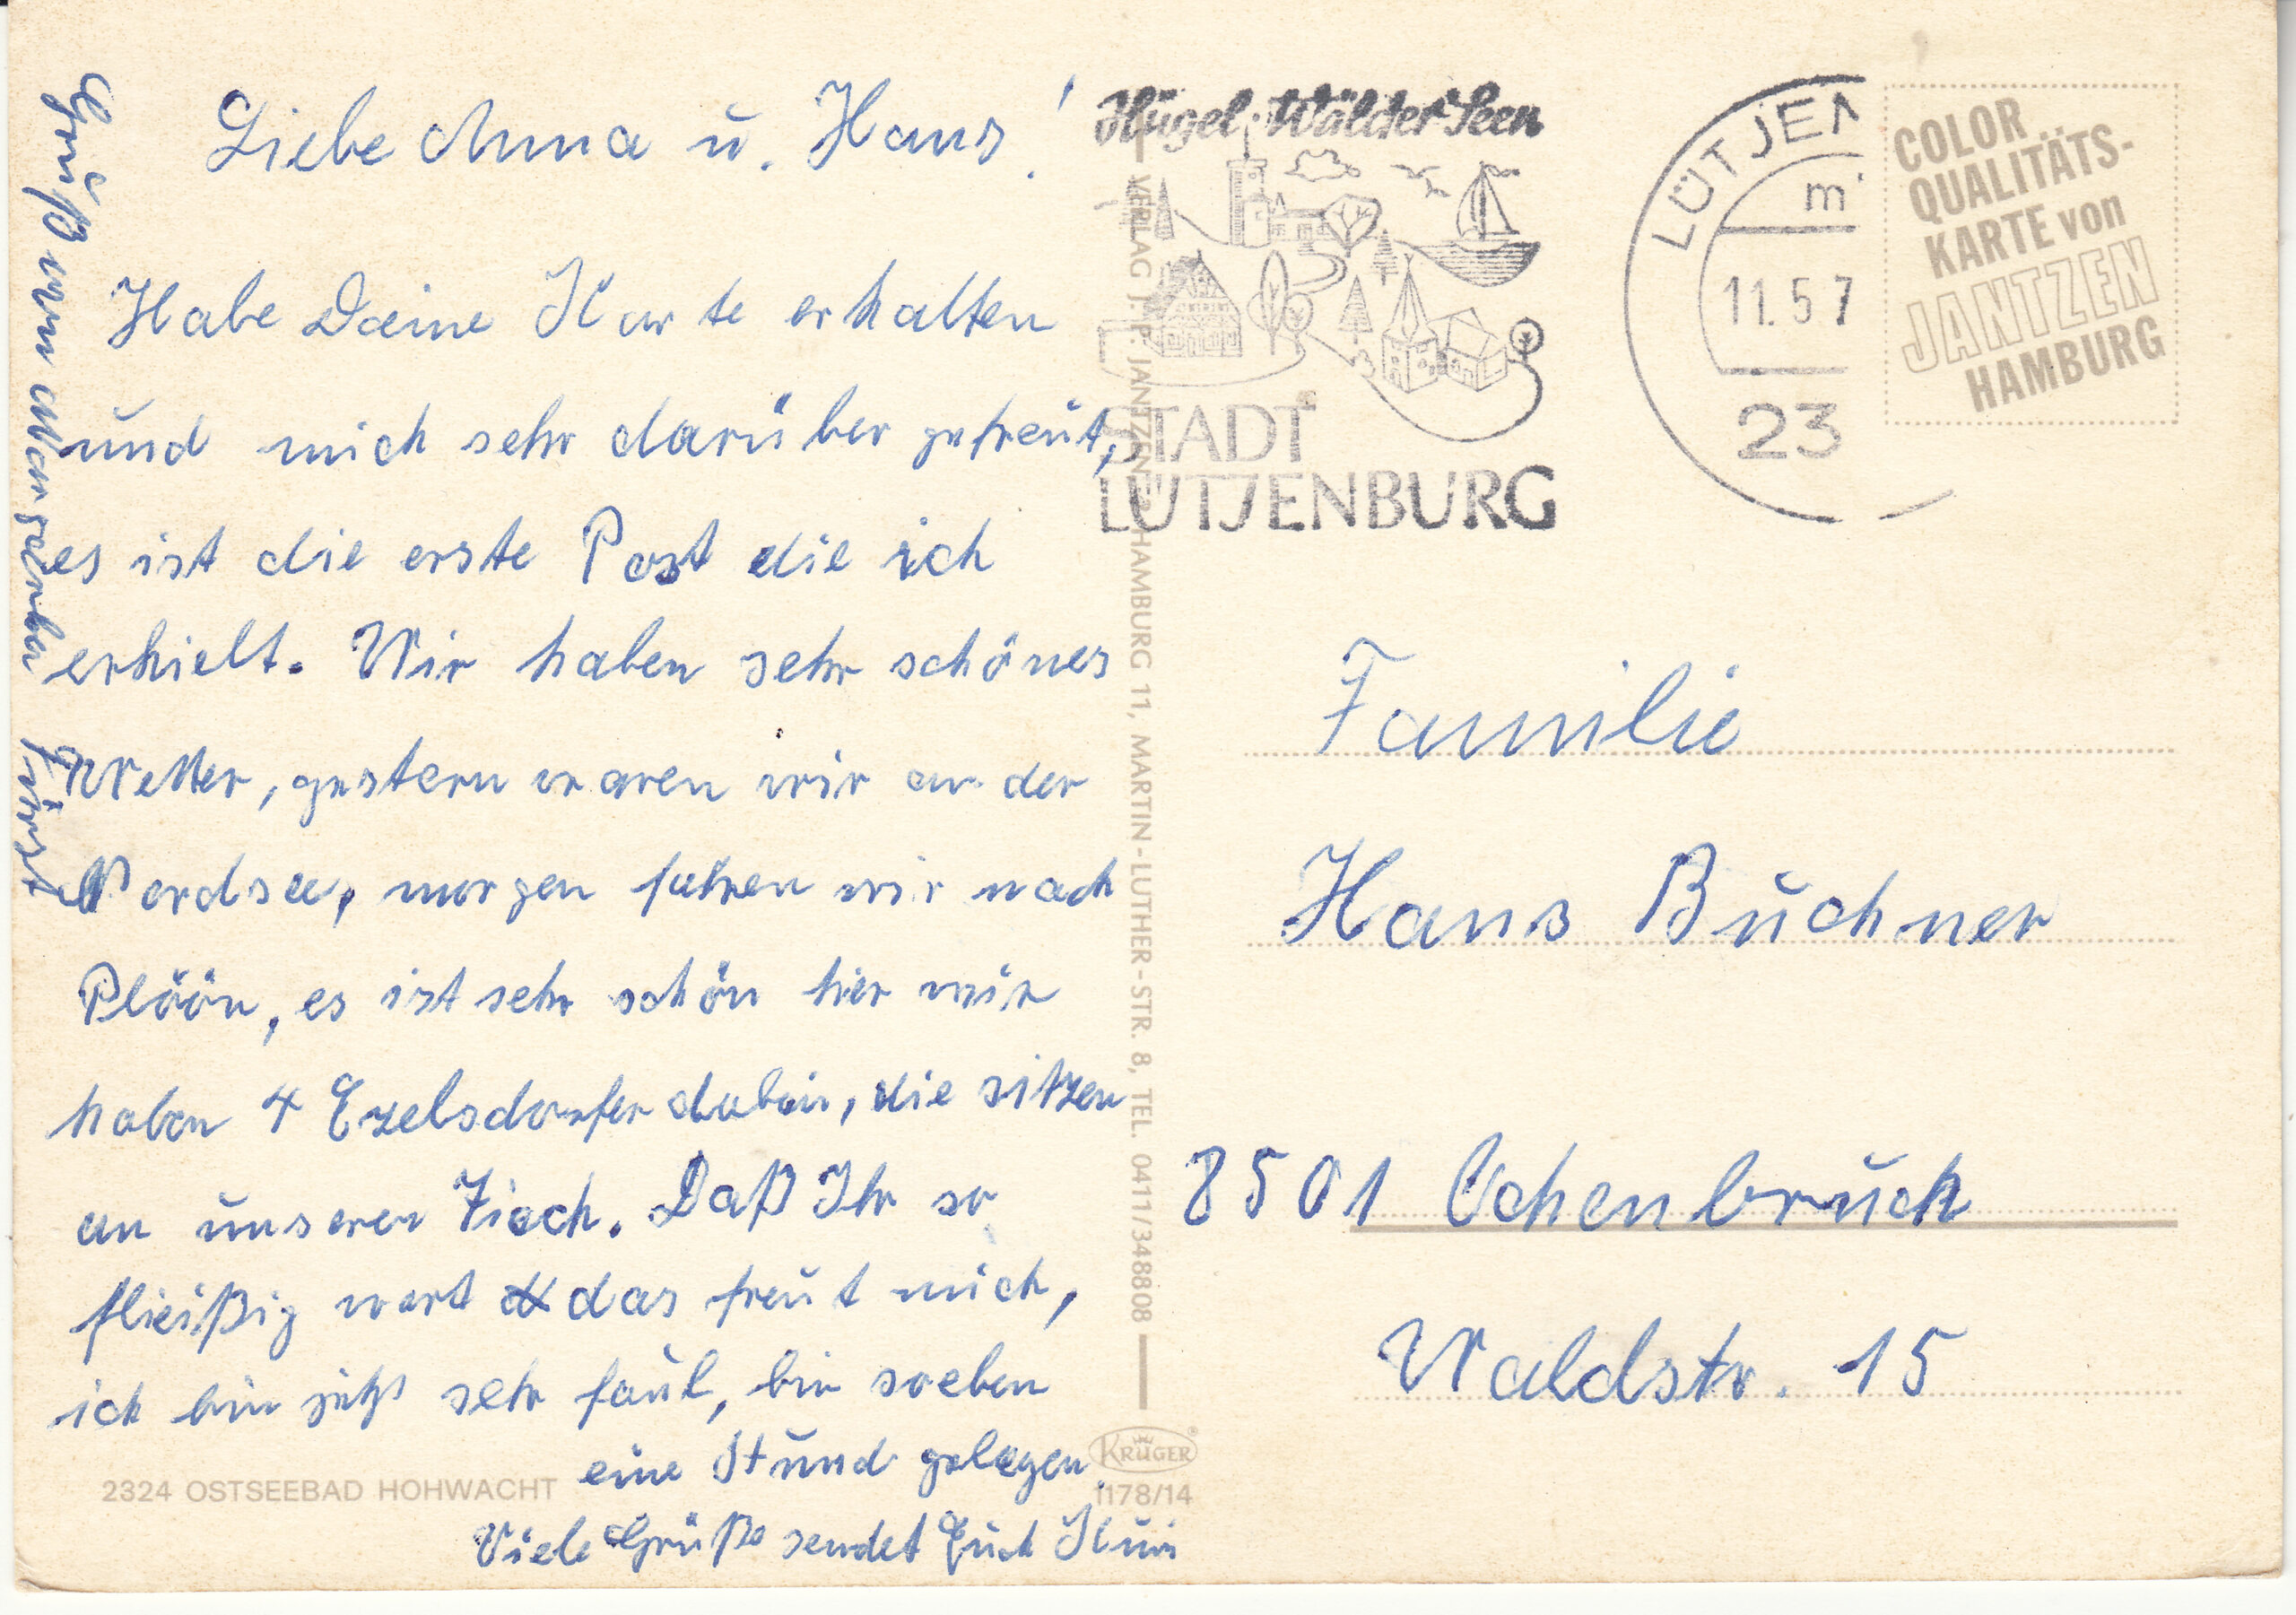 Liebe Anna u. Hans!
Habe Deine Karte erhalten
und mich sehr darüber gefreut,
es ist die erste Post die ich
erhielt. Wir haben sehr schönes
Wetter, gestern waren wir an der
Nordsee, morgen fahren wir nach
Plöön, es ist sehr schön hier wir
haben 4 Ezelsdorfer dabei, die sitzen
an unseren Tisch. Daß Ihr so
fleißig wart das freut mich,
ich bin jetzt sehr faul, bin soeben
eine Stund gelegen.
Viele Grüße sendet Euch
Gruß an
Hügel · Wälder Seen
STADT
LÜTJENBURG
LÜTJEN
m
11.5 7
23
COLOR
QUALITÄTS-
KARTE von
JANTZEN
HAMBURG
VERLAG J. P. JANTZEN, 2 HAMBURG 11, MARTIN-LUTHER-STR. 8, TEL. 0411/348808
Familie
Hans Buchner
8501 Ochenbruck
Waldstr. 15
2324 OSTSEEBAD HOHWACHT
KRÜGER
1178/14